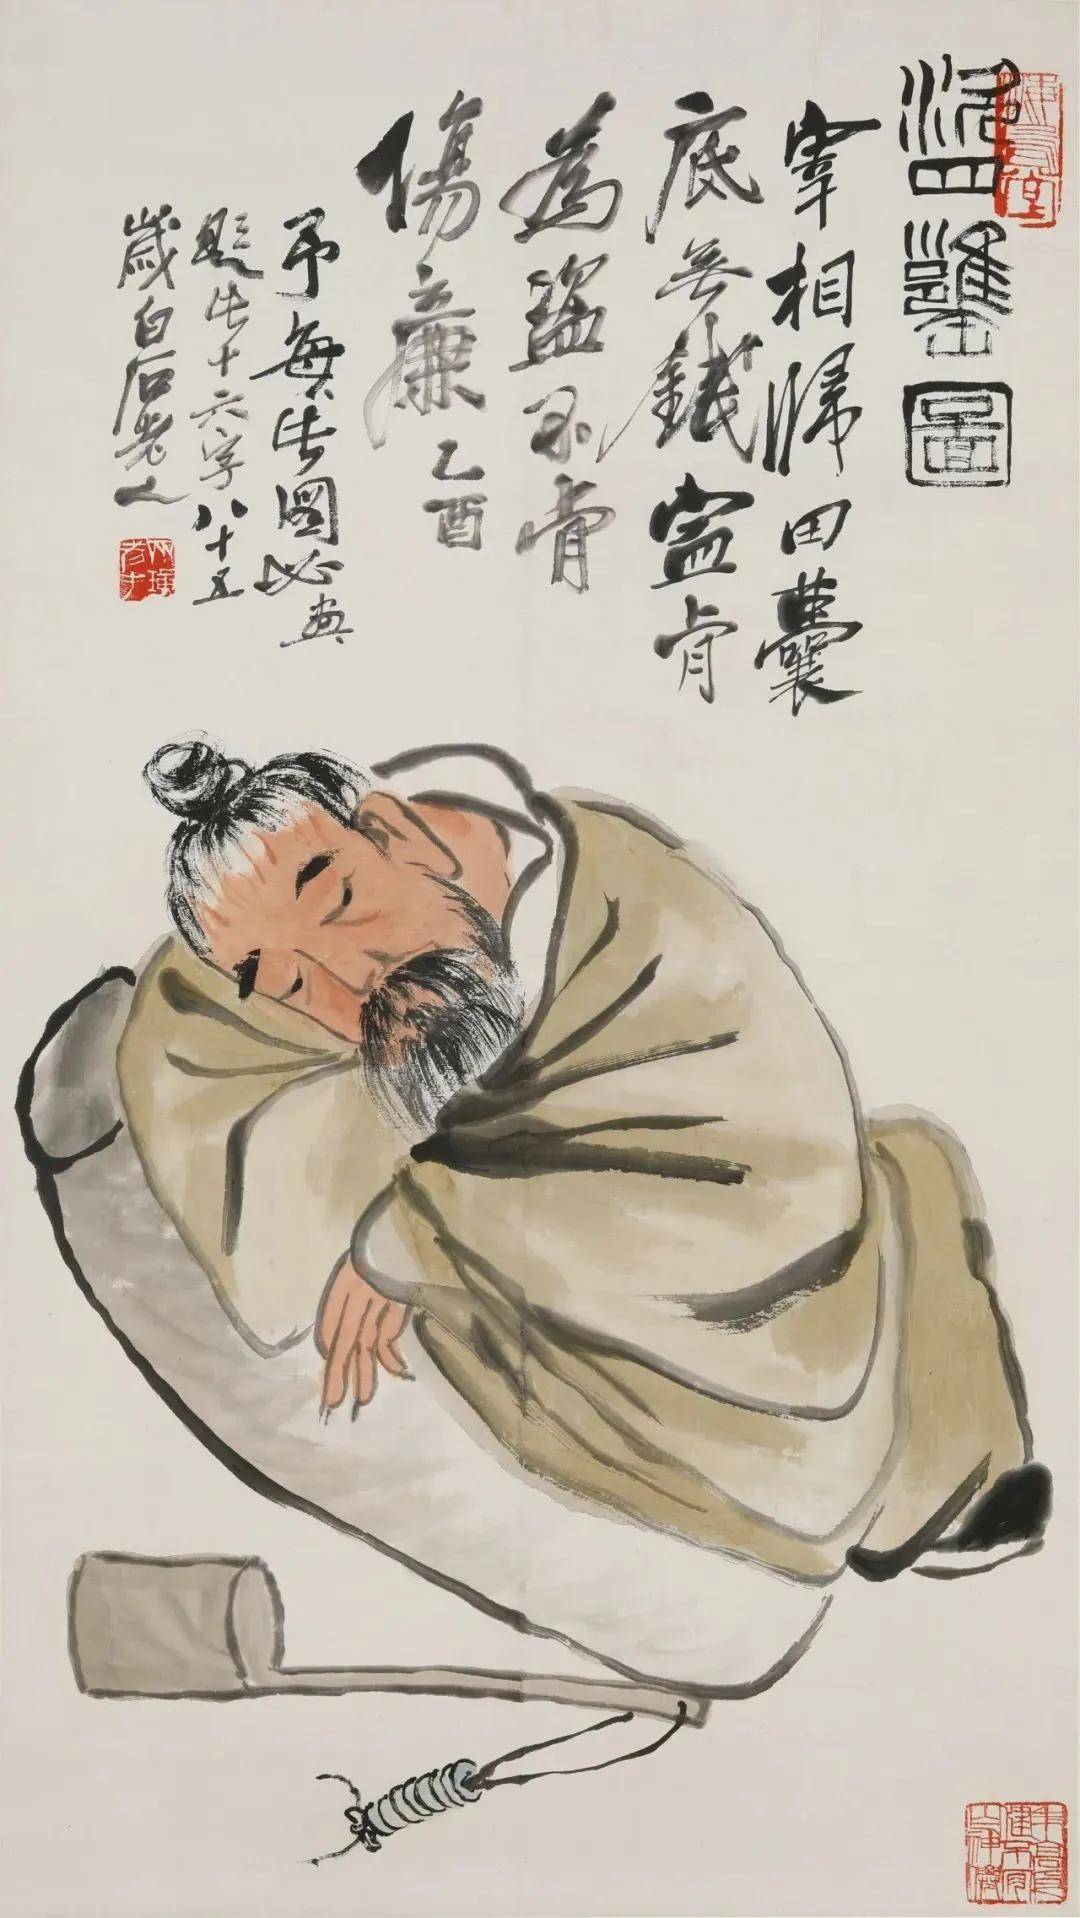 盜罋圖
宰相歸田囊
底無錢寍肯
為盜不肯
傷廉乙酉
予每此圖必
題此十六字八十五
歲白石老人